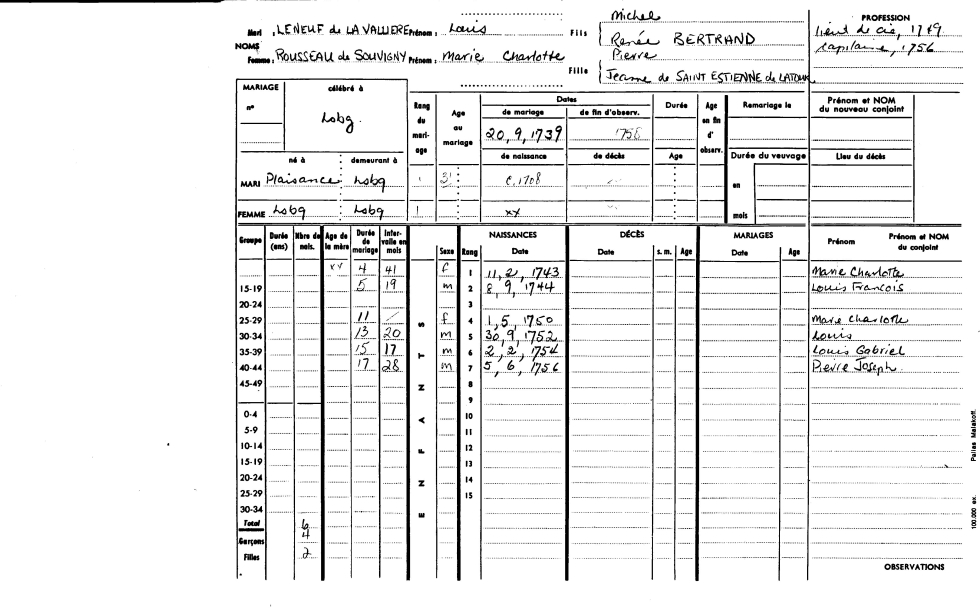 Michel
Mari , LENEUF de LA VALLIERE Prénom : Louis Fils Renée BERTRAND
NOMS
Femme , ROUSSEAU de SOUVIGNY Prénom : Marie Charlotte Fille Pierre
Jeanne de SAINT ESTIENNE de LATOUR
PROFESSION
lieut de cie, 1749
capitaine, 1756
MARIAGE célébré à
n°
Lobg.
Rang du mariage
Age au mariage
Dates
de mariage de fin d'observ.
20, 9, 1739 1758
Durée
Age en fin d'observ.
Remariage le
Prénom et NOM du nouveau conjoint
né à demeurant à
de naissance de décès Age
Durée du veuvage
Lieu du décès
MARI Plaisance Lobg 1 31 c. 1708
en
FEMME Lobg Lobg 1 xx
mois
Groupe Durée (ans) Nbre de nais. Age de la mère Durée de mariage Intervalle en mois Sexe Rang
NAISSANCES Date
DÉCÈS Date s. m. Age
MARIAGES Date Age
Prénom Prénom et NOM du conjoint
ENFANTS
xx 4 41 f 1 11, 2, 1743 Marie Charlotte
15-19 5 19 m 2 8, 9, 1744 Louis François
20-24 3
25-29 11 / f 4 1, 5, 1750 Marie Charlotte
30-34 13 20 m 5 30, 9, 1752 Louis
35-39 15 17 m 6 2, 2, 1754 Louis Gabriel
40-44 17 28 m 7 5, 6, 1756 Pierre Joseph
45-49 8
9
0-4 10
5-9 11
10-14 12
15-19 13
20-24 14
25-29 15
30-34
Total 6
Garçons 4
Filles 2
OBSERVATIONS
100.000 ex. Pallas Malakoff.